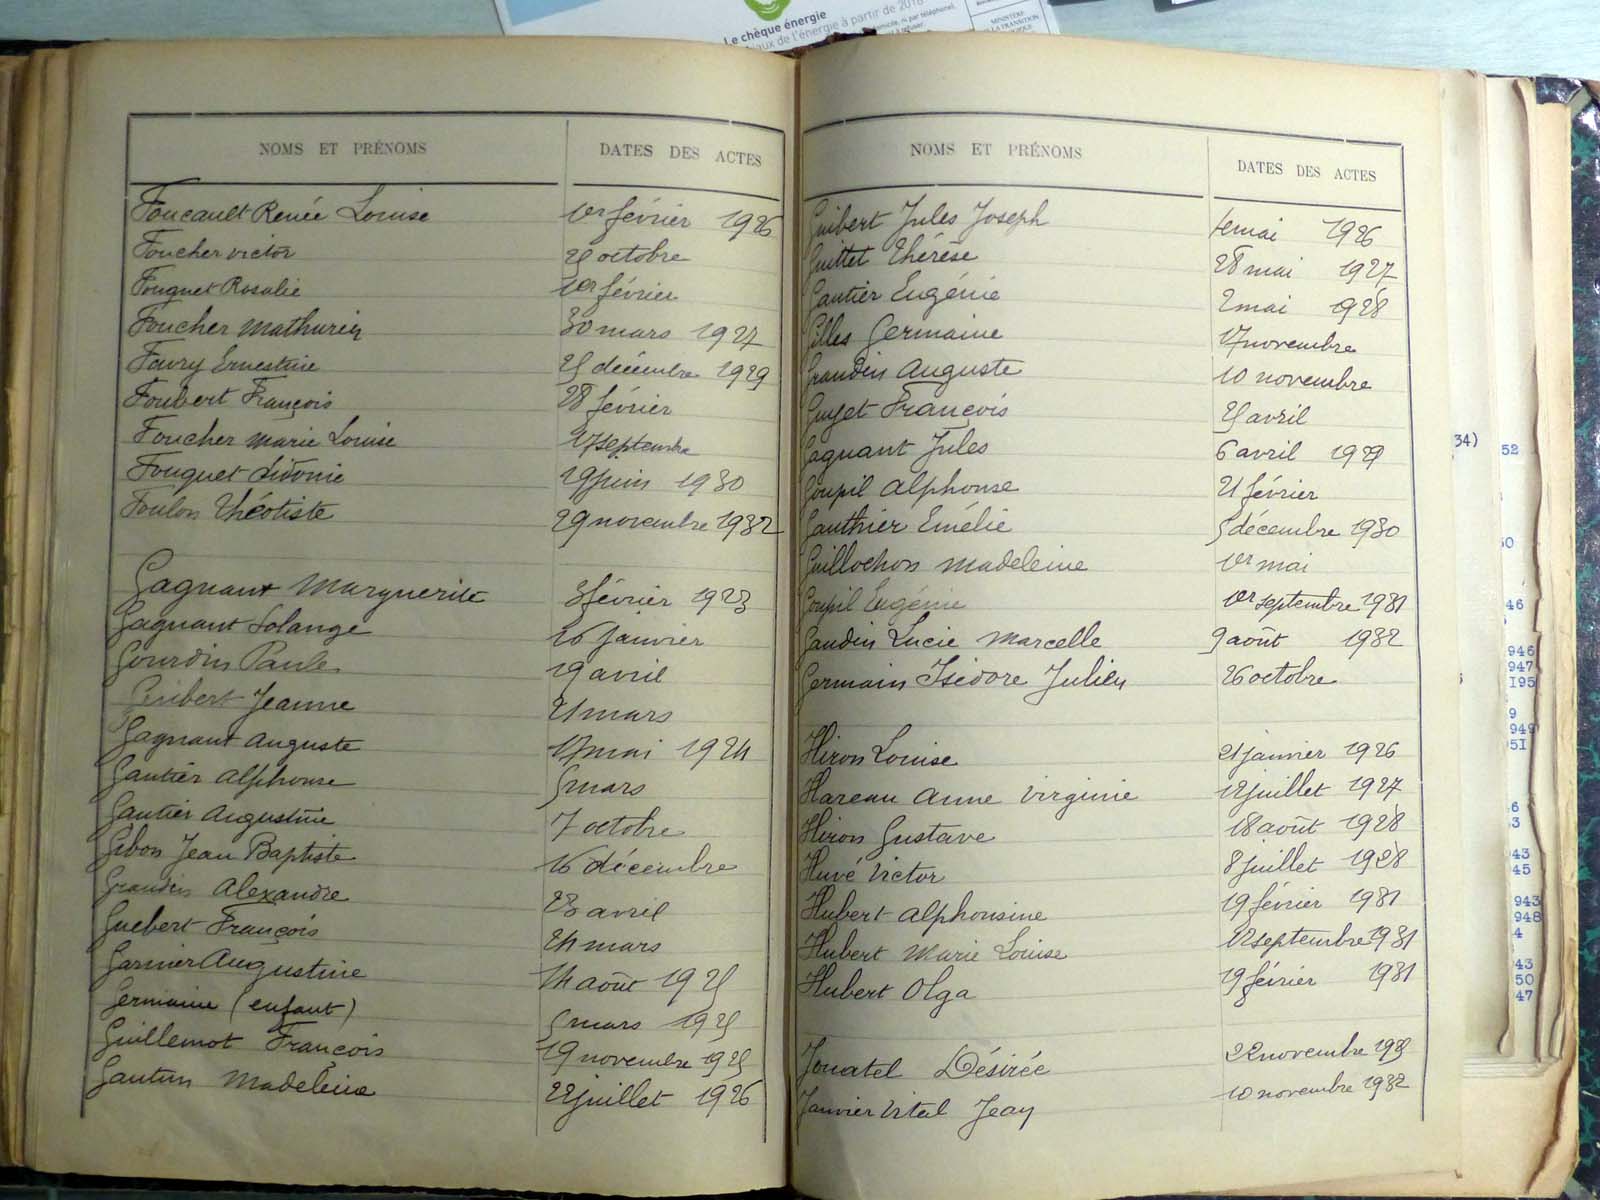 Le chèque énergie
aux de l'énergie à partir de 2018
MINISTÈRE
LA TRANSITION
NOMS ET PRÉNOMS DATES DES ACTES
Foucault Renée Louise 1er février 1926
Foucher victor 25 octobre
Fouquet Rosalie 1er février
Foucher Mathurin 30 mars 1927
Foury Ernestine 25 décembre 1929
Foubert François 28 février
Foucher Marie Louise 17 septembre
Fouquet Sidonie 19 juin 1930
Foulon Théotiste 29 novembre 1932
Gagnant Marguerite 3 février 1923
Gagnant Solange 16 janvier
Gourdin Paule 19 avril
Guibert Jeanne 21 mars
Gagnant Auguste 17 mai 1924
Gautier Alphonse 5 mars
Gautier Augustine 7 octobre
Gibon Jean Baptiste 16 décembre
Grandin Alexandre 23 avril
Guebert François 24 mars
Garnier Augustine 14 août 1925
Germaine (enfant) 5 mars 1925
Guillemot François 19 novembre 1925
Madeleine 22 juillet 1926
NOMS ET PRÉNOMS DATES DES ACTES
Guibert Jules Joseph mai 1926
Guittet Thérèse 28 mai 1927
Gautier Eugénie 2 mai 1928
Gilles Germaine 17 novembre
Grandin Auguste 10 novembre
Guyet François 25 avril
Gagnant Jules 6 avril 1929
Goupil Alphonse 21 février
Gauthier Emélie 5 décembre 1930
Guillochon Madeleine 1er mai
Goupil Eugénie 1er septembre 1931
Gaudin Lucie Marcelle 9 août 1932
Germain Isidore Julien 26 octobre
Hiron Louise 21 janvier 1926
Hareau Anne Virginie 12 juillet 1927
Hiron Gustave 18 août 1928
Huvé Victor 8 juillet 1928
Hubert Alphonsine 19 février 1931
Hubert Marie Louise 12 septembre 1931
Hubert Olga 19 février 1931
Jouatel Désirée 22 novembre 1925
Janvier Vital Jean 10 novembre 1932
34)
52
46
946
947
195
9
949
51
43
45
943
948
4
43
50
47